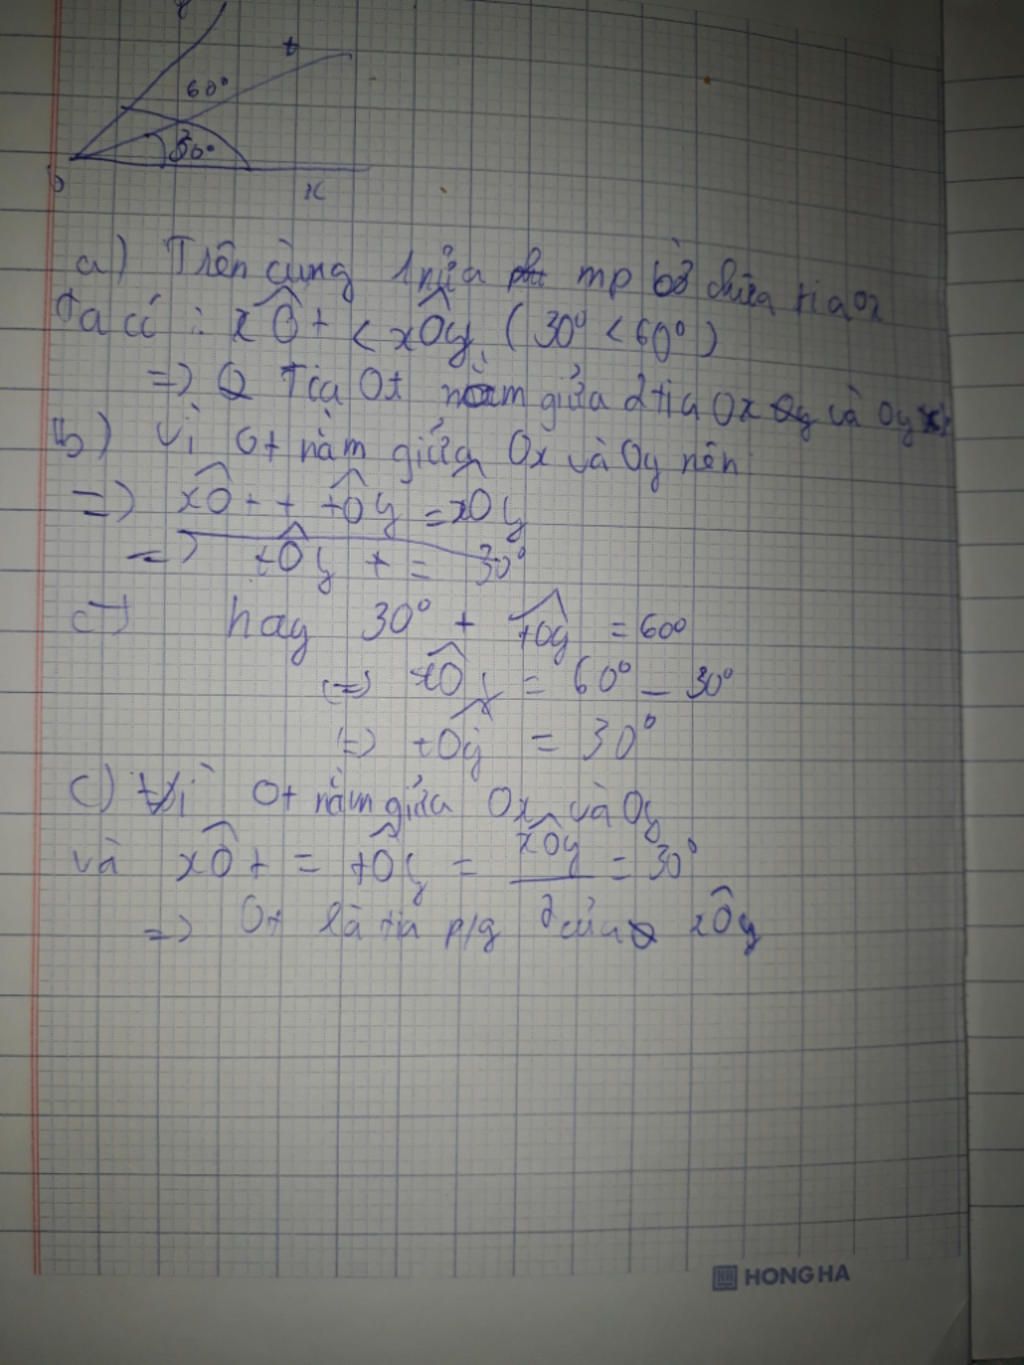 y
t
60°
30°
O
x
a) Trên cùng 1 nửa mp bờ chứa tia Ox
ta có : xÔt < xÔy ( 30° < 60° )
=> Tia Ot nằm giữa 2 tia Ox và Oy
b) Vì Ot nằm giữa Ox và Oy nên
=> xÔt + tÔy = xÔy
=> tÔy + = 30°
c) hay 30° + tÔy = 60°
=> xÔy = 60° - 30°
=> tÔy = 30°
c) Vì Ot nằm giữa Ox và Oy
và xÔt = tÔy = xÔy / 2 = 30°
=> Ot là tia p/g của xÔy
HONG HA